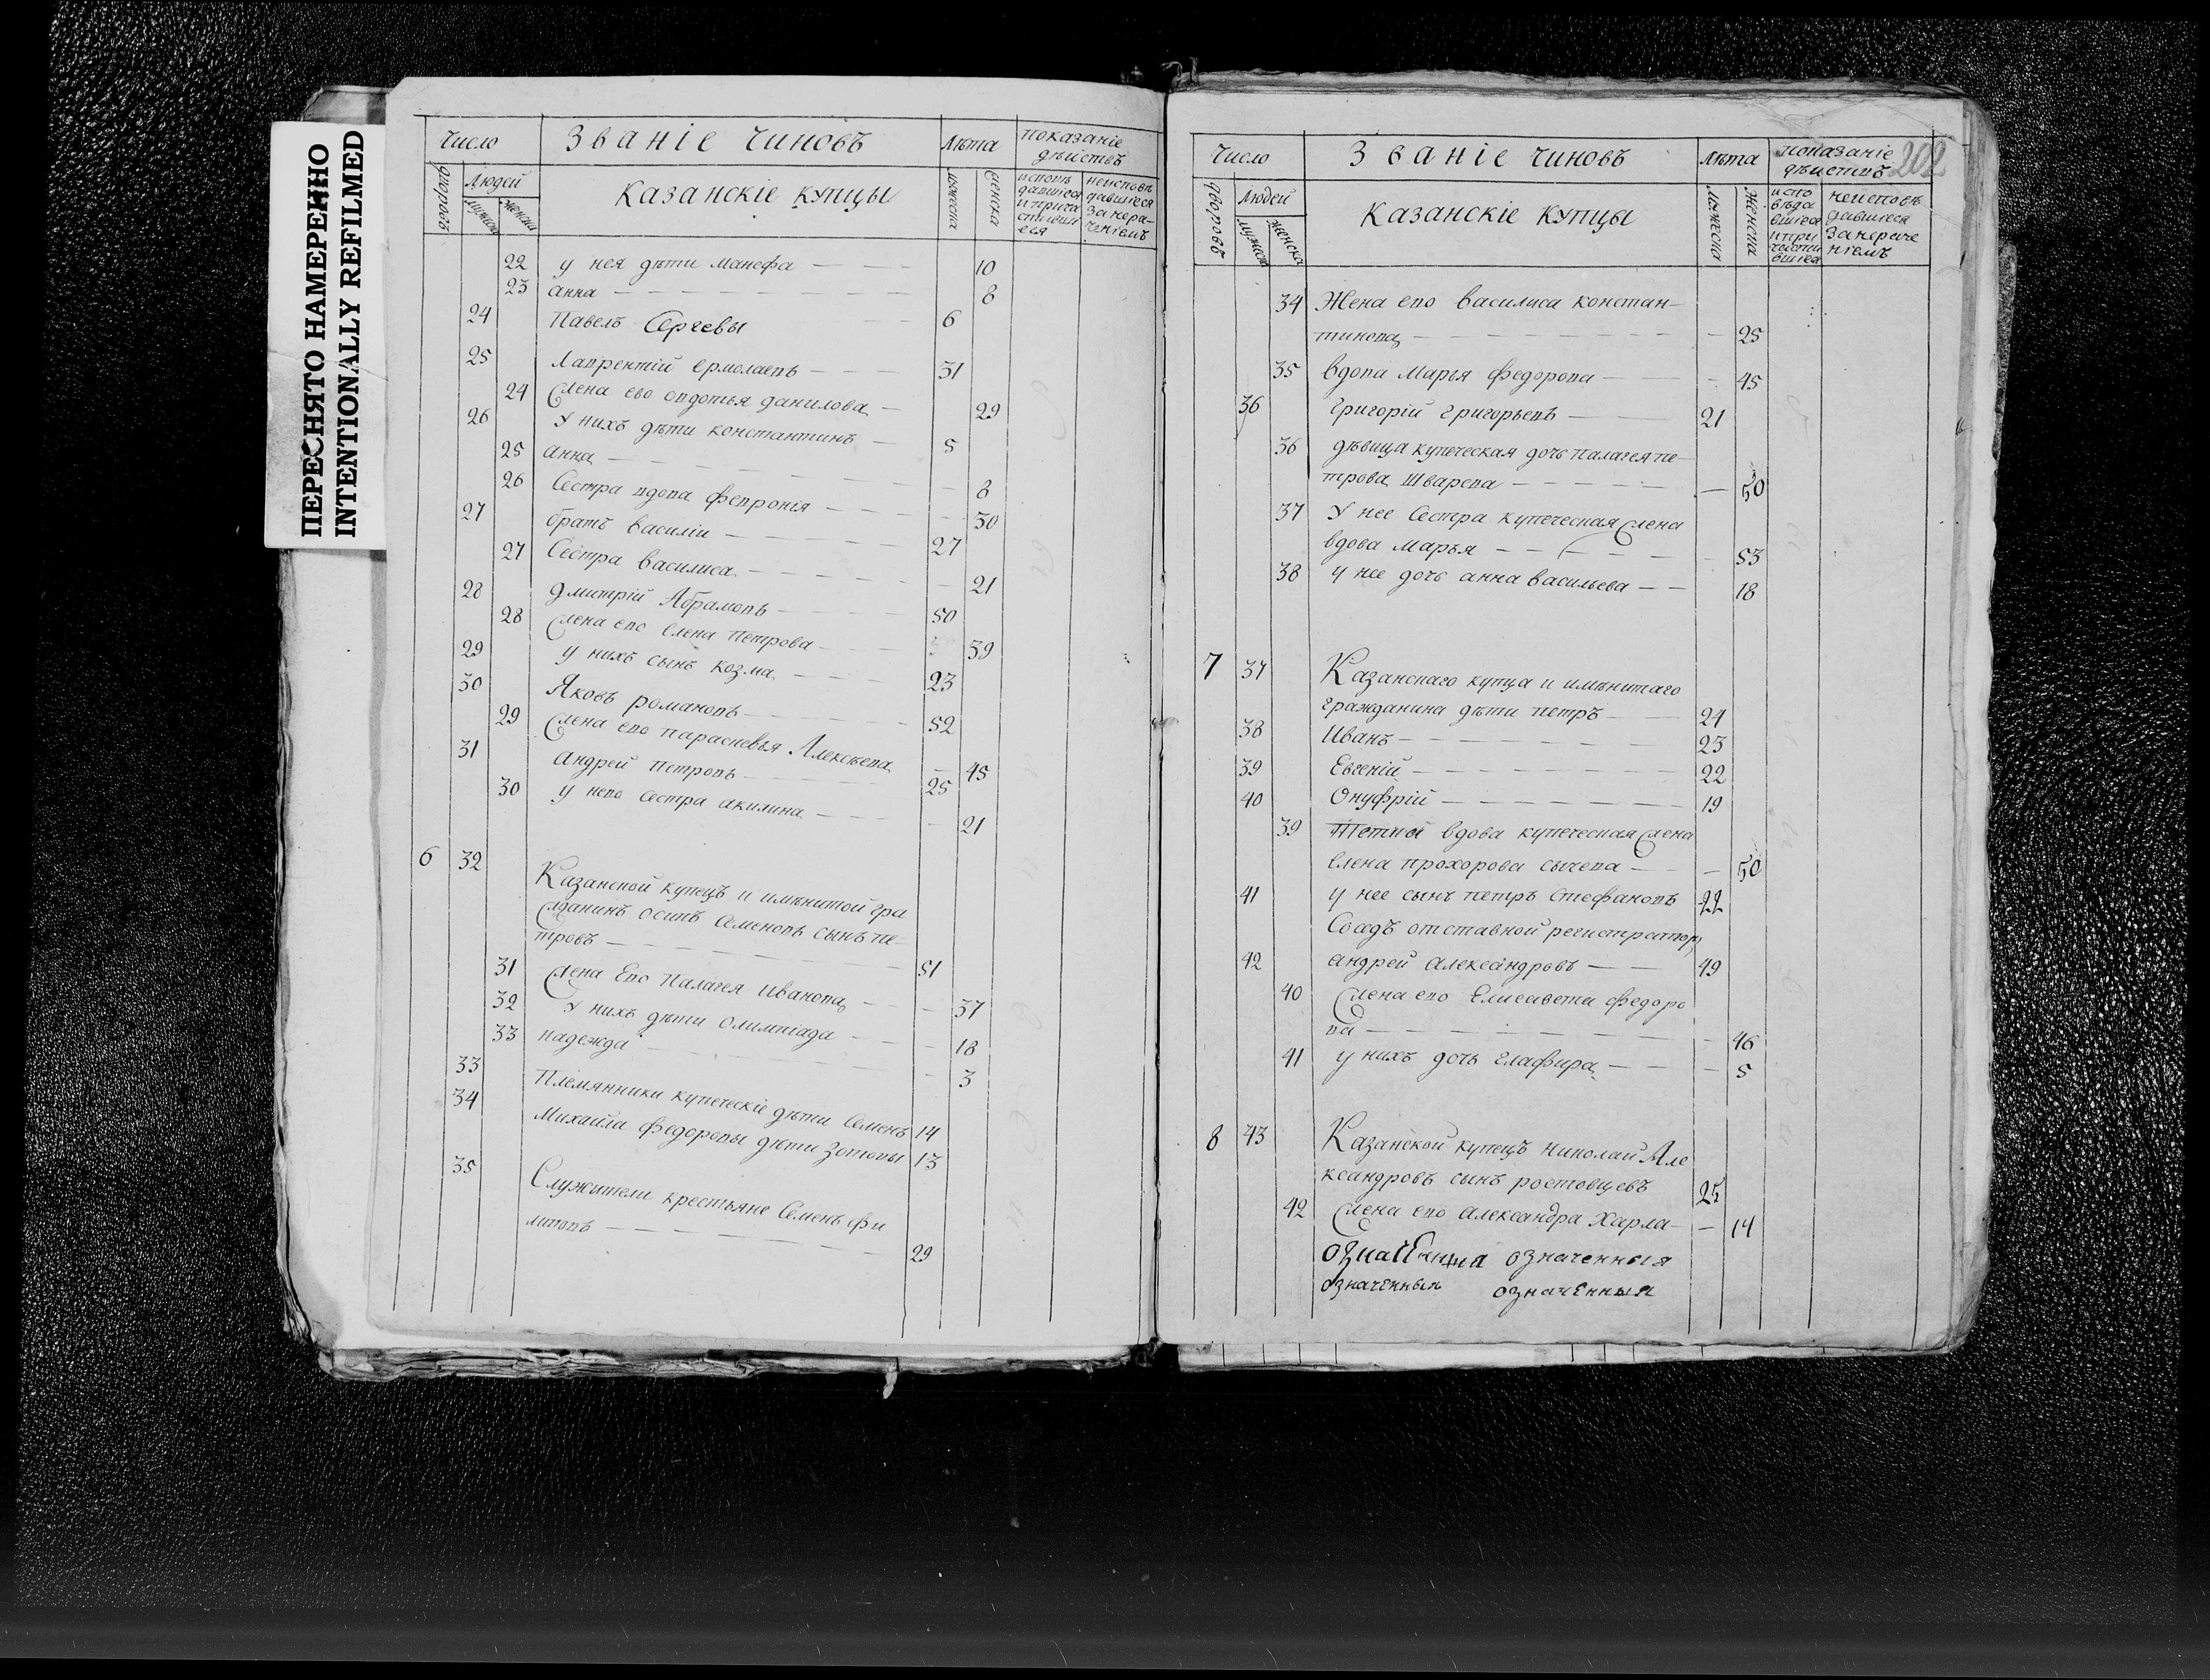 ПЕРЕСНЯТО НАМЕРЕННО
INTENTIONALLY REFILMED
Число Званіе чиновъ Лѣта показаніе дѣйствъ
дворовъ Людей мужеска женска Казанскіе купцы мужеска женска исповѣдавшіеся и причастившіеся неисповѣдавшіеся за нераченіемъ
22 у нея дѣти Манефа 10
23 анна 8
24 Павелъ Сергевы 6
25 Лаврентій ермолаевъ 31
24 Жена ево овдотья данилова 29
26 У нихъ дѣти константинъ 5
25 анна 8
26 Сестра вдова февронія 30
27 братъ василіи 27
27 Сестра василиса 21
28 дмитрій Абрамовъ 50
28 Жена ево елена петрова 39
29 У нихъ сынъ козма 23
30 Яковъ романовъ 52
29 Жена ево парасковья Алексѣева 45
31 Андрей петровъ 25
30 у него сестра акилина 21
6 32 Казанской купецъ и имѣнитой гра
жданинъ осипъ Семеновъ сынъ пе-
тровъ 51
31 Жена Ево палагея иванова 37
32 У нихъ дѣти олимпіада 18
33 надежда 3
33 Племянники купеческіе дѣти Семенъ 14
34 Михайла федоровы дѣти Зотовы 13
35 Служители крестьяне Семенъ фи
липовъ 29
202
Число Званіе чиновъ лѣта показаніе дѣиствъ
дворовъ людей мужеска женска казанскіе купцы мужеска женска исповѣдавшіеся и причастившіеся неисповѣдавшіеся за нераченіемъ
34 Жена ево василиса констан-
тинова 25
35 вдова Марья федорова 45
36 григорій григорьевъ 21
36 дѣвица купеческая дочь палагея пе-
трова Шварева 50
37 У нее Сестра купеческая жена
вдова марья 53
38 у нее дочь анна васильева 18
7 37 Казанскаго купца и имѣнитаго
гражданина дѣти петръ 24
38 Иванъ 23
39 Евгеній 22
40 Онуфрій 19
39 вдова купеческая жена
елена прохорова сычева 50
41 у нее сынъ петръ Стефановъ 22
отставной регистраторъ
42 андрей александровъ 49
40 Жена ево Елисавета федоро
ва 46
41 у нихъ дочь глафира 5
8 43 Казанской купецъ николай Але
ксандровъ сынъ ростовцевъ 25
42 Жена ево александра Харла- 14
означенныя означенныя
означенныя означенныя